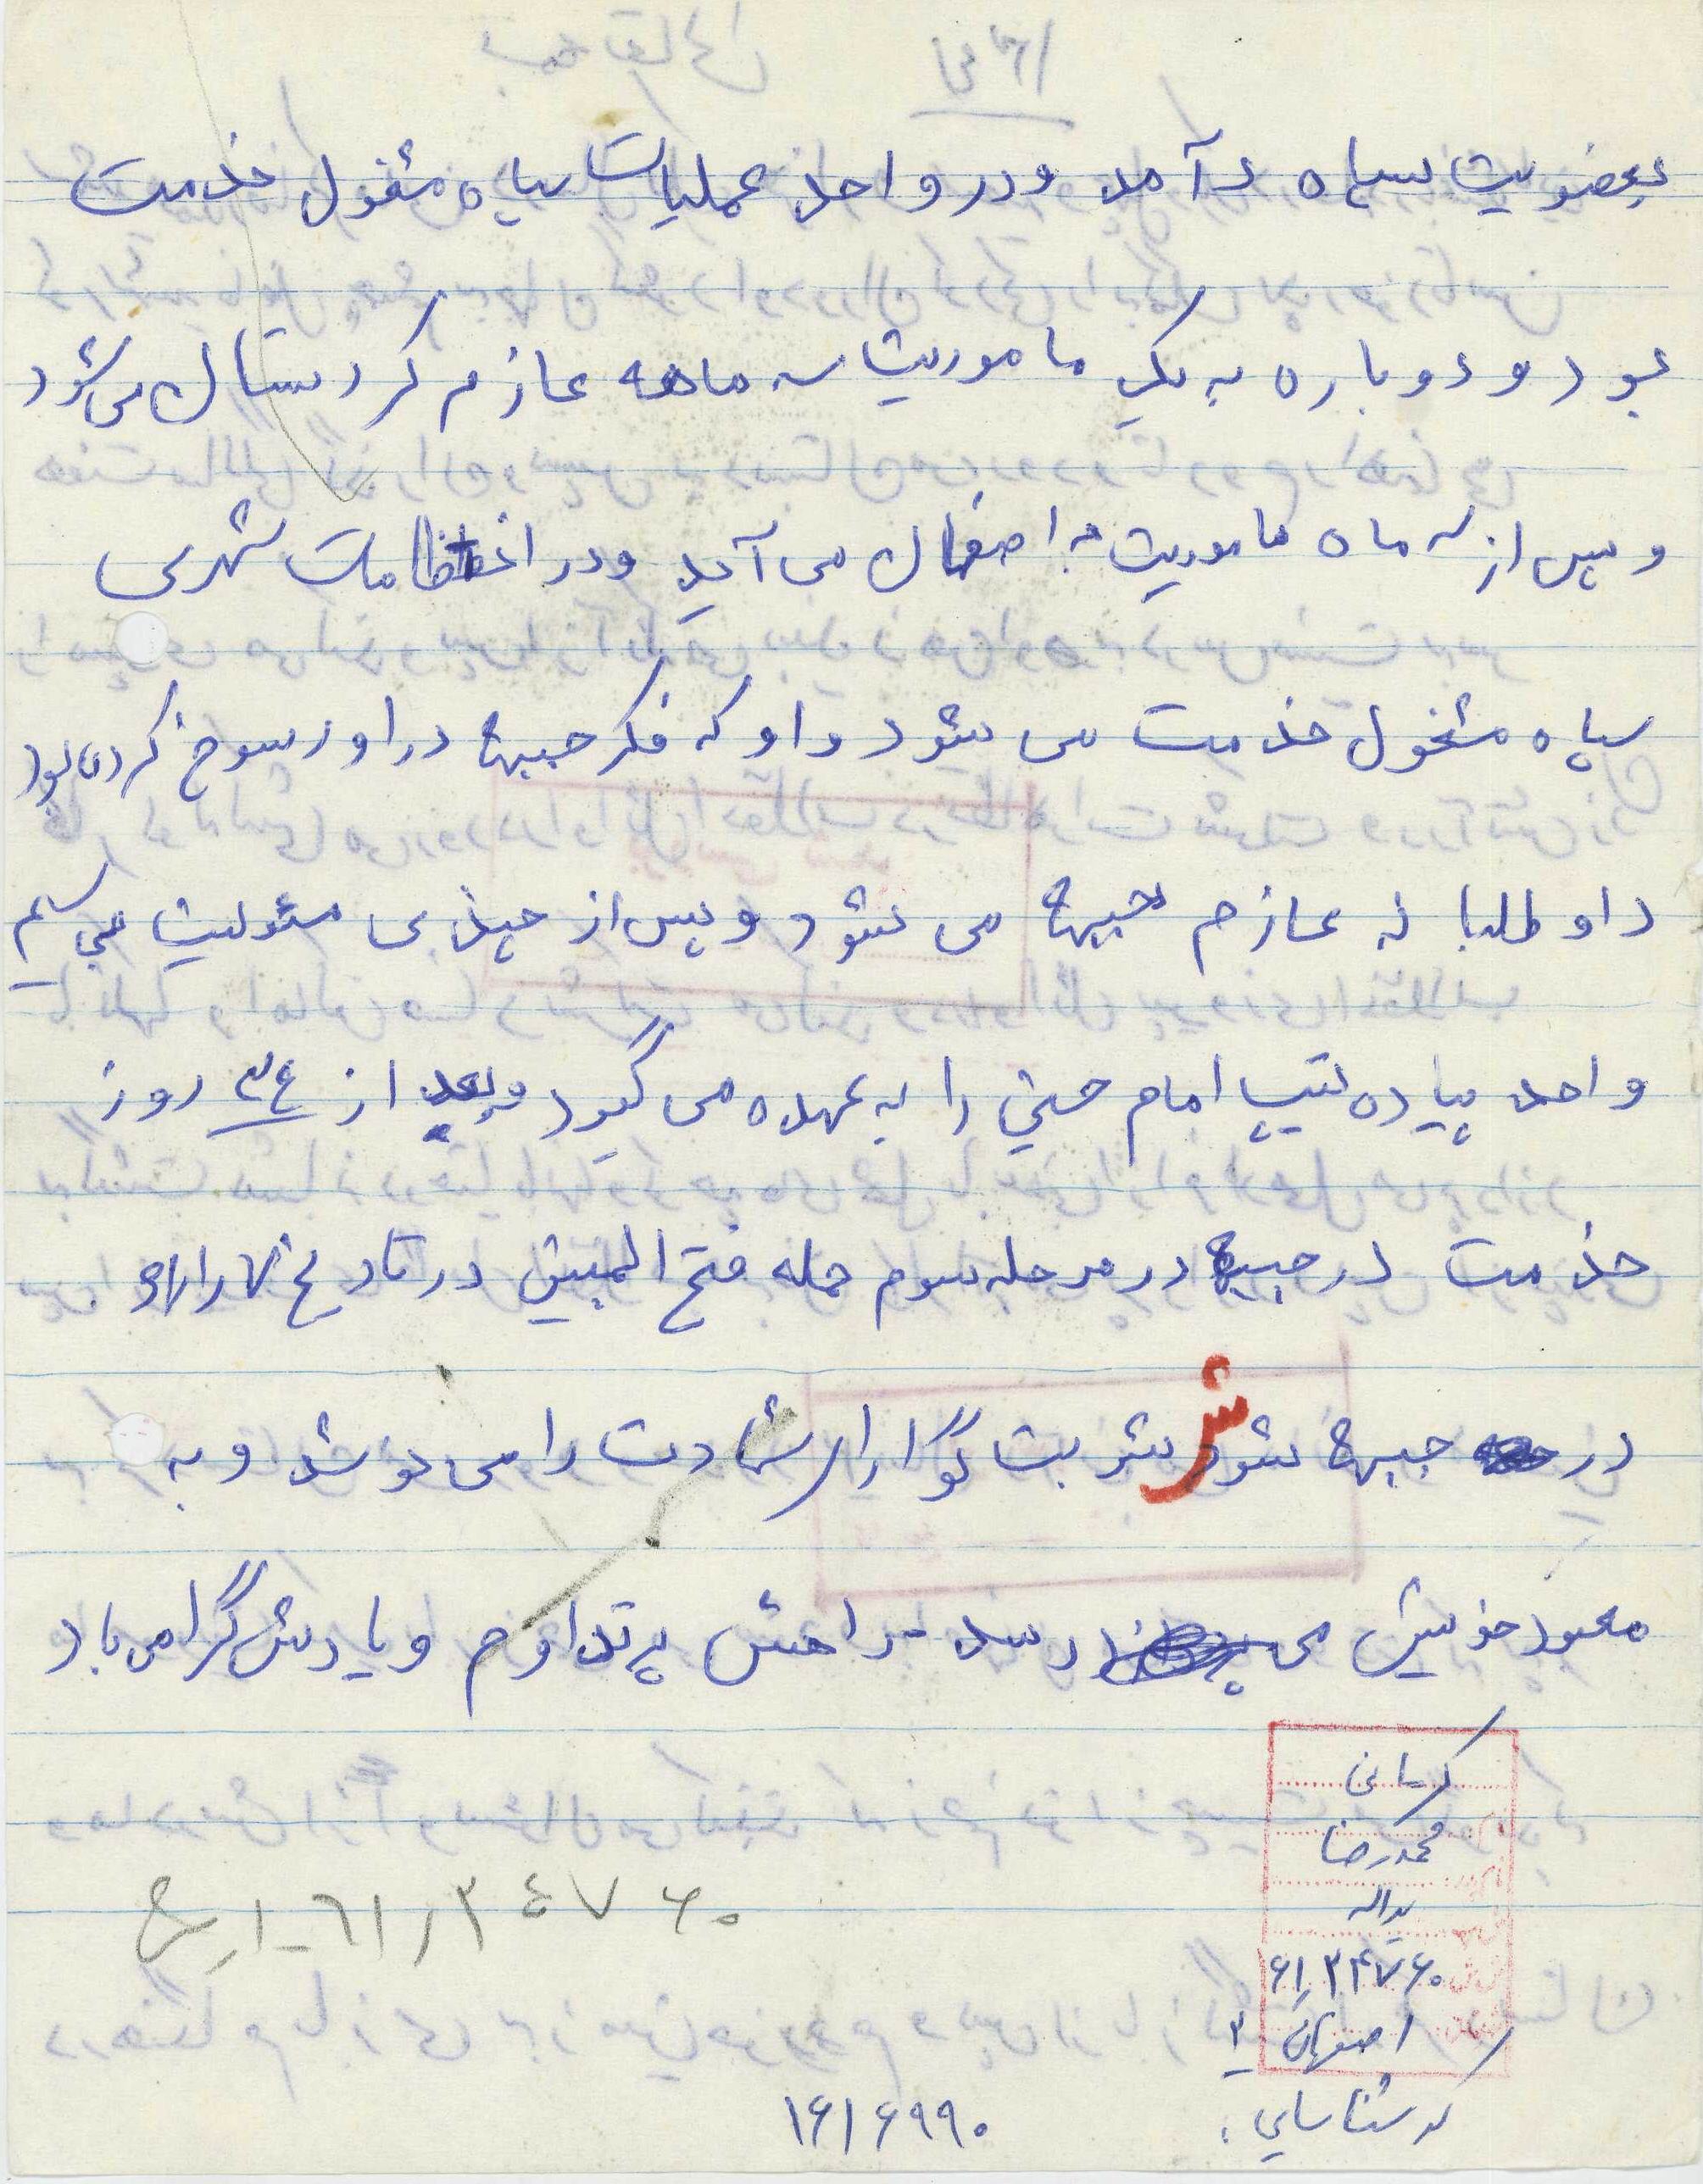 بعضویت سپاه درآمد و در واحد عملیات سپاه مشغول خدمت
بود و دوباره به یک ماموریت سه ماهه عازم کردستان می شود
و پس از سه ماه ماموریت به اصفهان می آید و در انتظامات شهری
سپاه مشغول خدمت می شود و او که فکر جبهه در او رسوخ کرده بود
داوطلبانه عازم جبهه می شود و پس از چندی مسئولیت بی سیم
واحد پیاده تیپ امام حسین را به عهده می گیرد و بعد از روز
خدمت در جبهه در مرحله سوم حمله فتح المبین در تاریخ
در جبهه شوش شربت گوارای شهادت را می نوشد و به
معبود خویش می رسد راهش پر تداوم و یادش گرامی باد
کرمانی
محمدرضا
یداله
۶۱٫۳۴۷۶۰
۶۱٫۳٤۷۶۰
اصفهان ۲
کد شناسایی : ۱۶۱۶۹۹۰